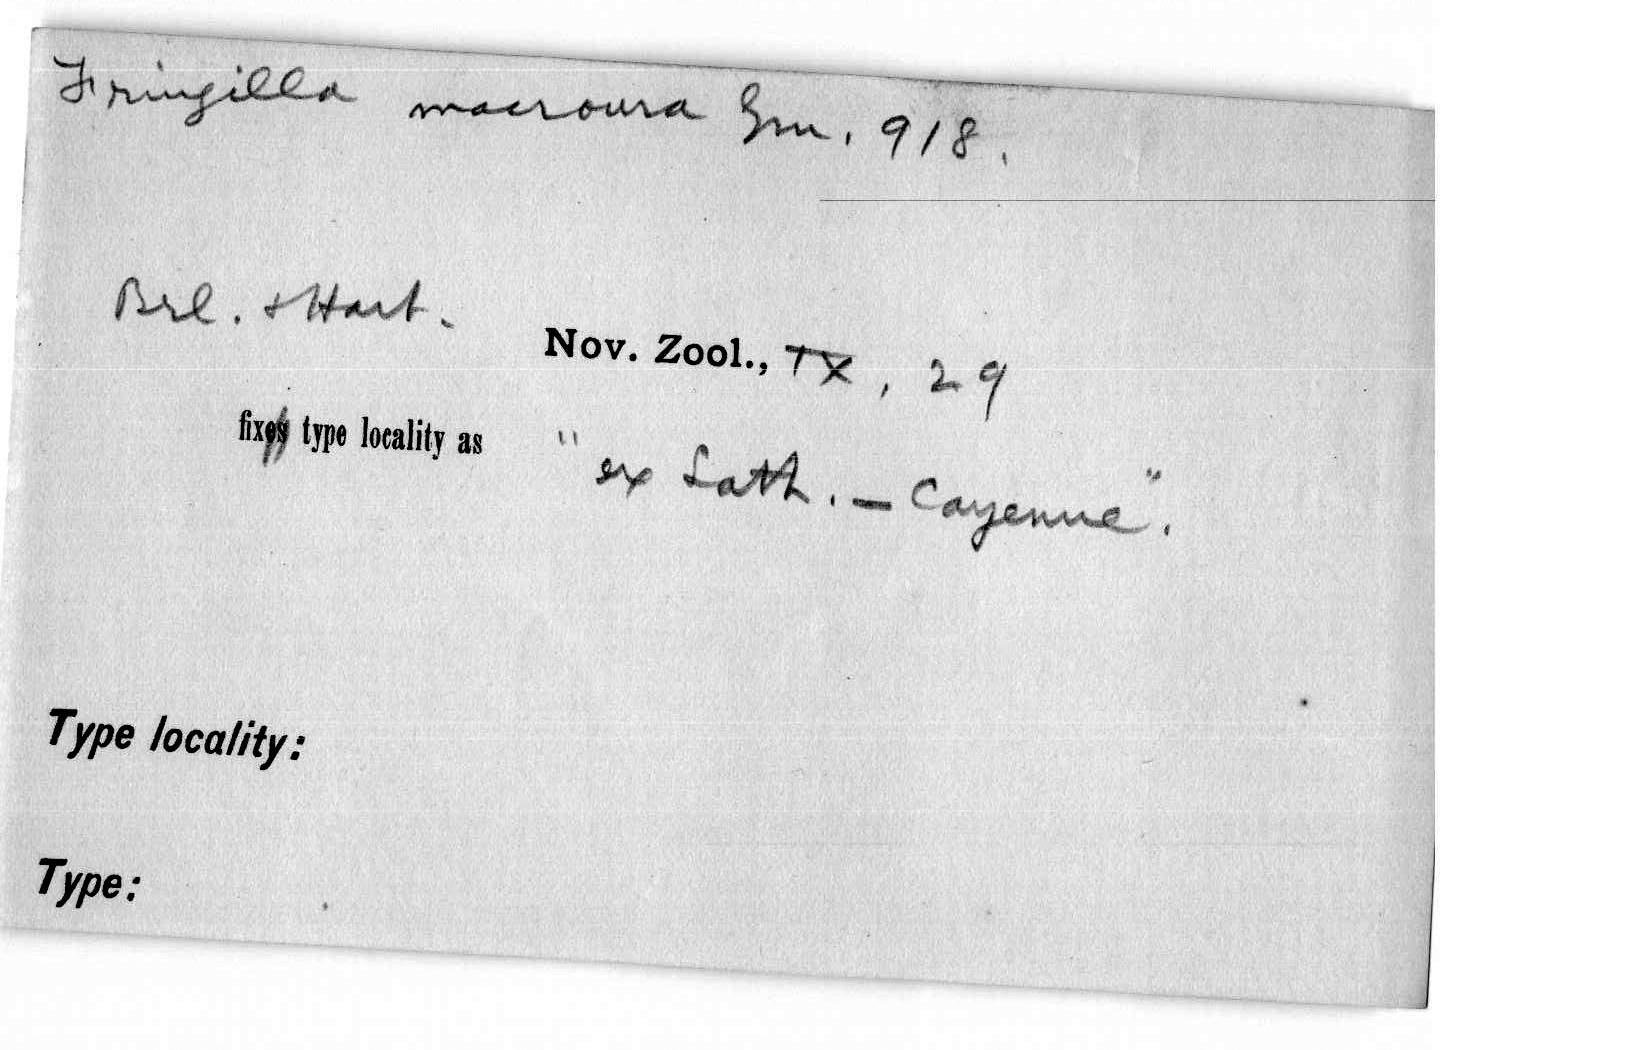 Fringilla macroura Gm., 918.
Brl. & Hart.
Nov. Zool., IX, 29
fix type locality as "ex Lath. — Cayenne".
Type locality:
Type: